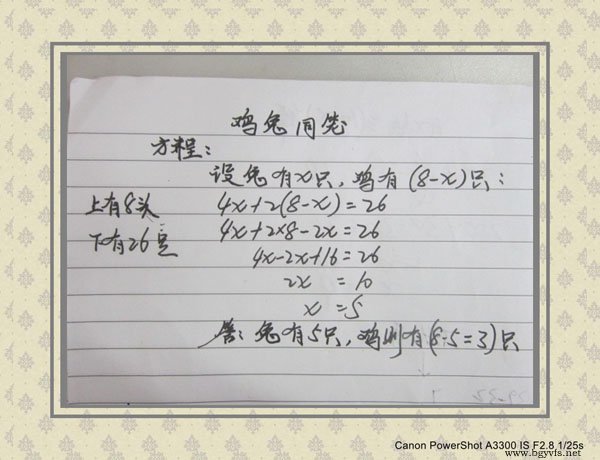 鸡兔同笼
方程：
设兔有x只，鸡有(8-x)只：
上有8头
4x+2(8-x)=26
下有26足
4x+2×8-2x=26
4x-2x+16=26
2x =10
x =5
答：兔有5只，鸡则有(8-5=3)只
Canon PowerShot A3300 IS F2.8,1/25s
www.bgyvfs.net